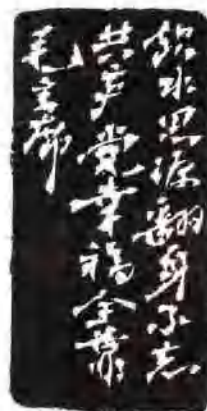 饮水思源翻身不忘
共产党幸福全靠
毛主席